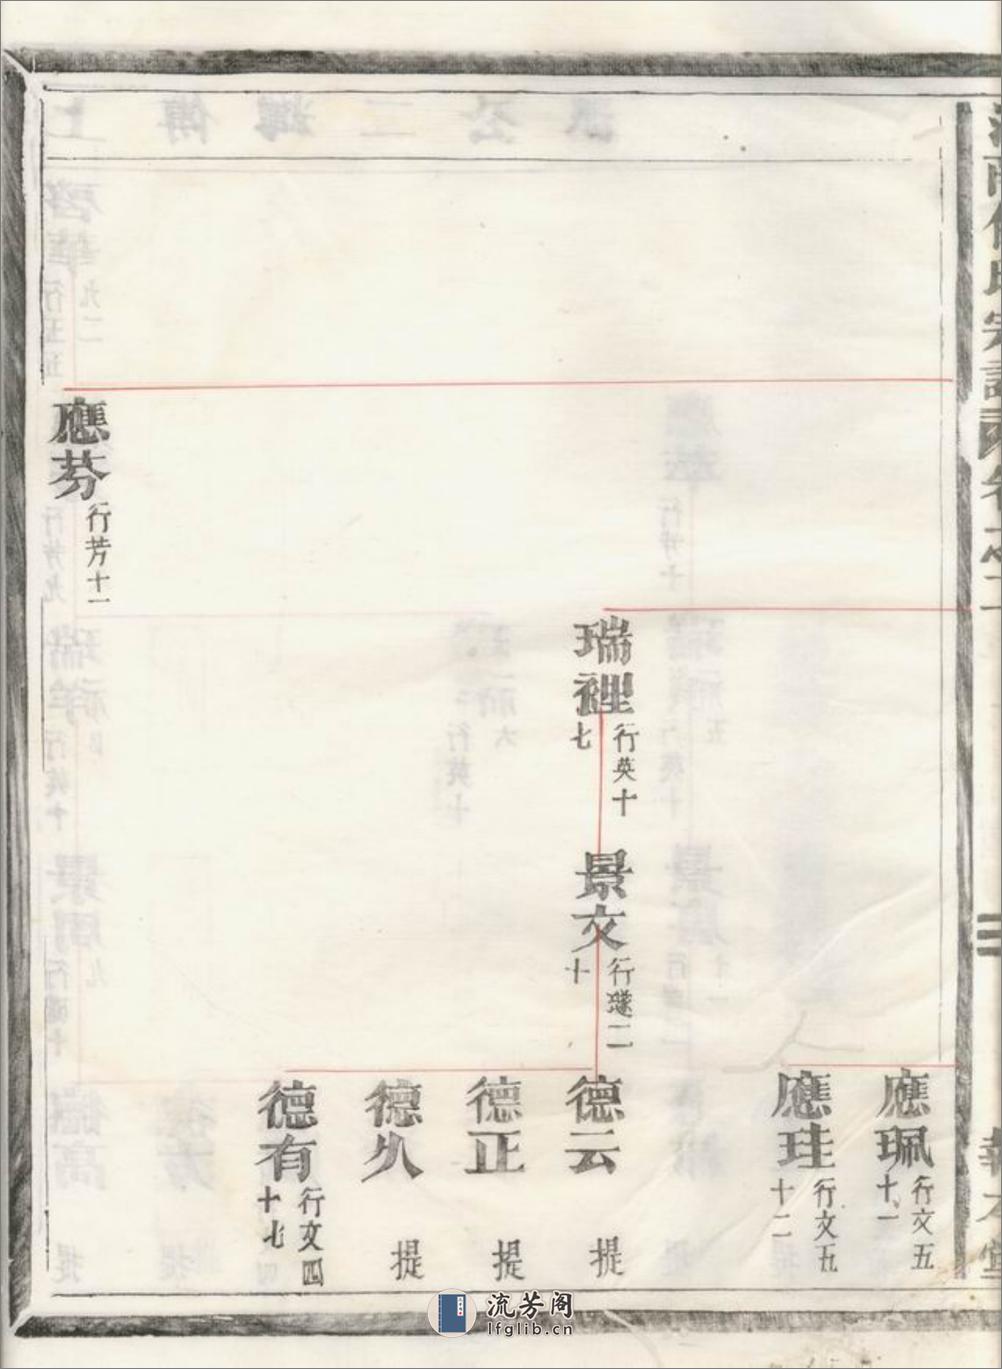 應珮 行文五十一
應珪 行文五十二
瑞裡 行英十七
景文 行璲二十
德云 提
德正 提
德久 提
德有 行文四十七
應芬 行芳十一
流芳阁
lfglib.cn